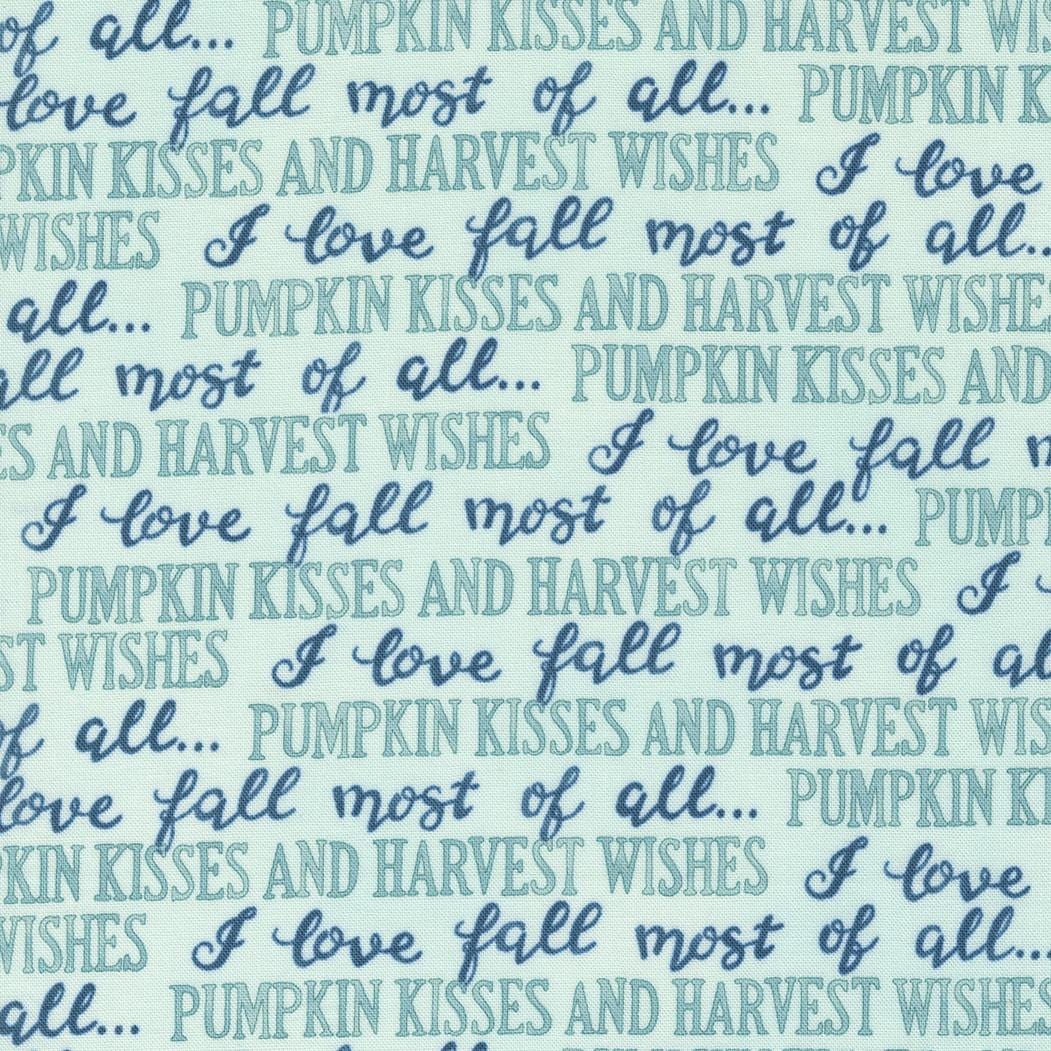 of all... PUMPKIN KISSES AND HARVEST WIS
love fall most of all... PUMPKIN K
PKIN KISSES AND HARVEST WISHES I love
WISHES I love fall most of all...
all... PUMPKIN KISSES AND HARVEST WISHES
all most of all... PUMPKIN KISSES AND
ES AND HARVEST WISHES I love fall m
I love fall most of all... PUMP
PUMPKIN KISSES AND HARVEST WISHES I
ST WISHES I love fall most of al
of all... PUMPKIN KISSES AND HARVEST WIS
love fall most of all... PUMPKIN KI
PKIN KISSES AND HARVEST WISHES I love
WISHES I love fall most of all...
all... PUMPKIN KISSES AND HARVEST WISHES